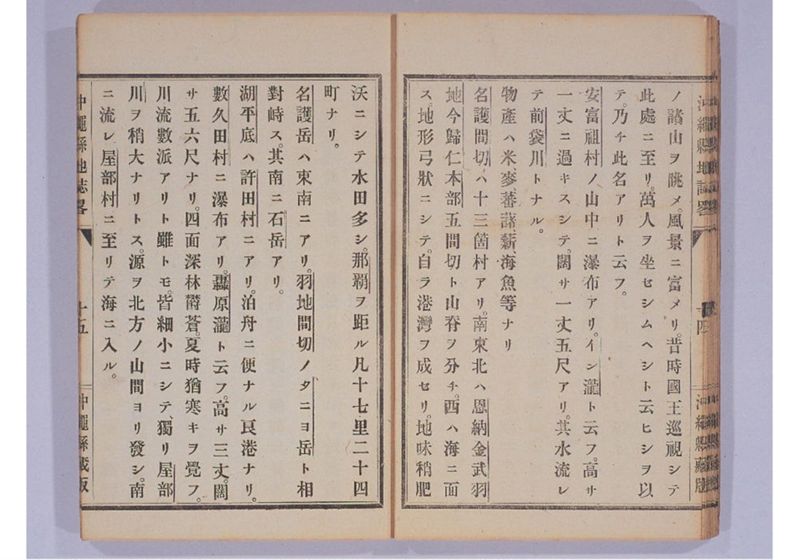 ノ諸山ヲ眺メ。風景ニ富メリ。昔時國王巡視シテ
此處ニ至リ。萬人ヲ坐セシムヘシト云ヒシヲ以
テ。乃チ此名アリト云フ。
安富祖村ノ山中ニ瀑布アリ。イン瀧ト云フ。高サ
一丈ニ過キスシテ。闊サ一丈五尺アリ。其水流レ
テ前袋川トナル。
物產ハ米麥蕃諸薪海魚等ナリ
名護間切ハ十三箇村アリ。南東北ハ恩納金武羽
地今歸仁本部五間切ト山脊ヲ分チ。西ハ海ニ面
ス。地形弓狀ニシテ。自ラ港灣ヲ成セリ。地味稍肥
沖繩縣地誌畧
十四
沖繩縣藏版
沃ニシテ水田多シ。那覇ヲ距ル凡十七里二十四
町ナリ。
名護岳ハ東南ニアリ。羽地間切ノタニヨ岳ト相
對峙ス。其南ニ石岳アリ。
湖平底ハ許田村ニアリ。泊舟ニ便ナル良港ナリ。
數久田村ニ瀑布アリ。轟原瀧ト云フ。高サ三丈。闊
サ五六尺ナリ。四面深林欝蒼。夏時猶寒キヲ覺フ。
川流數派アリト雖トモ。皆細小ニシテ。獨リ屋部
川ヲ稍大ナリトス。源ヲ北方ノ山間ヨリ發シ。南
ニ流レ屋部村ニ至リテ海ニ入ル。
沖繩縣地誌畧
十五
沖繩縣藏版